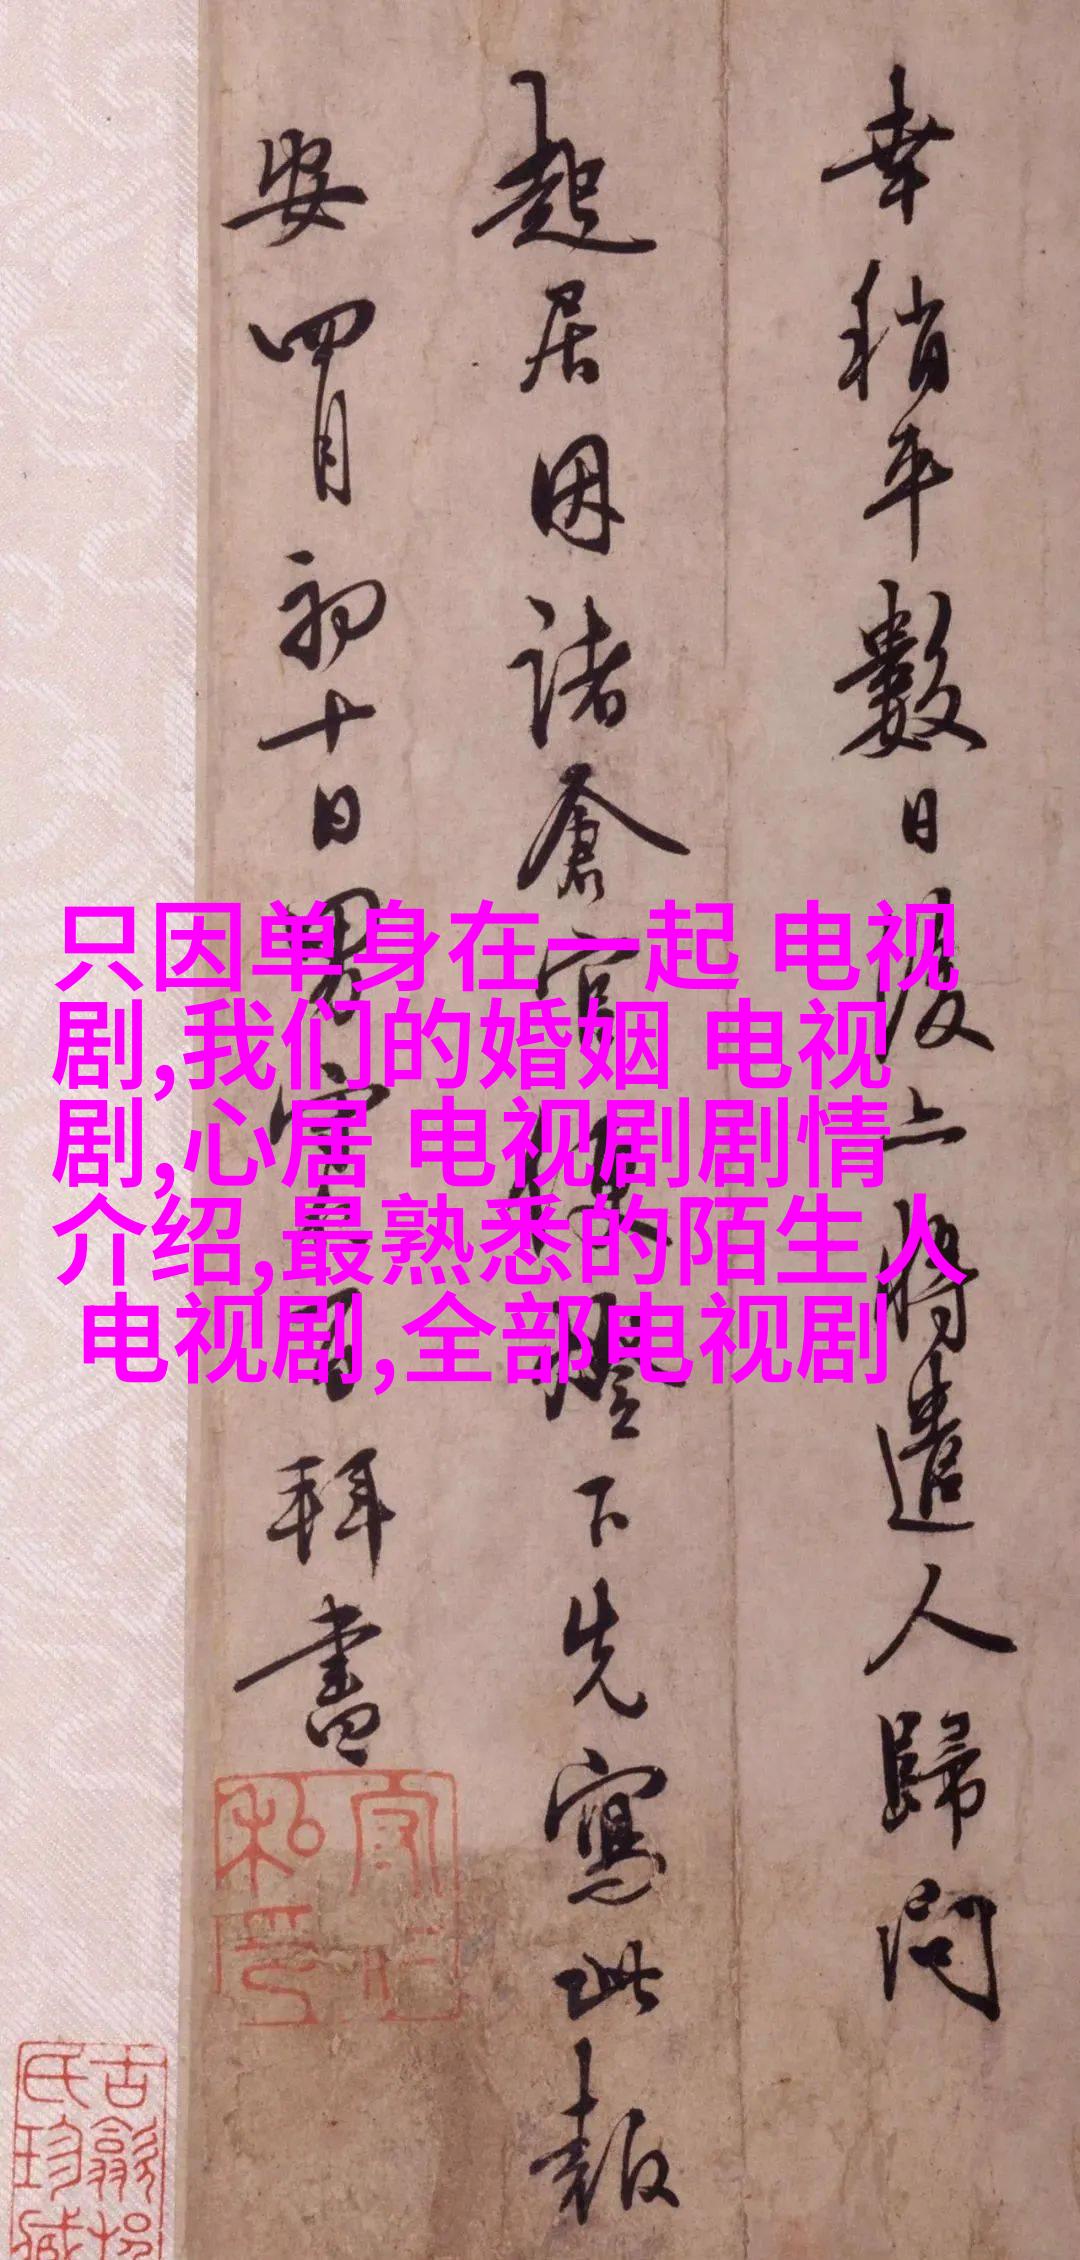 幸稍平數日後上將遣人歸問
起居因諸倉官
下先寫此報
安四月初十日
拜書
只因单身在一起 电视
剧,我们的婚姻 电视
剧,心居 电视剧剧情
介绍,最熟悉的陌生人
电视剧,全部电视剧